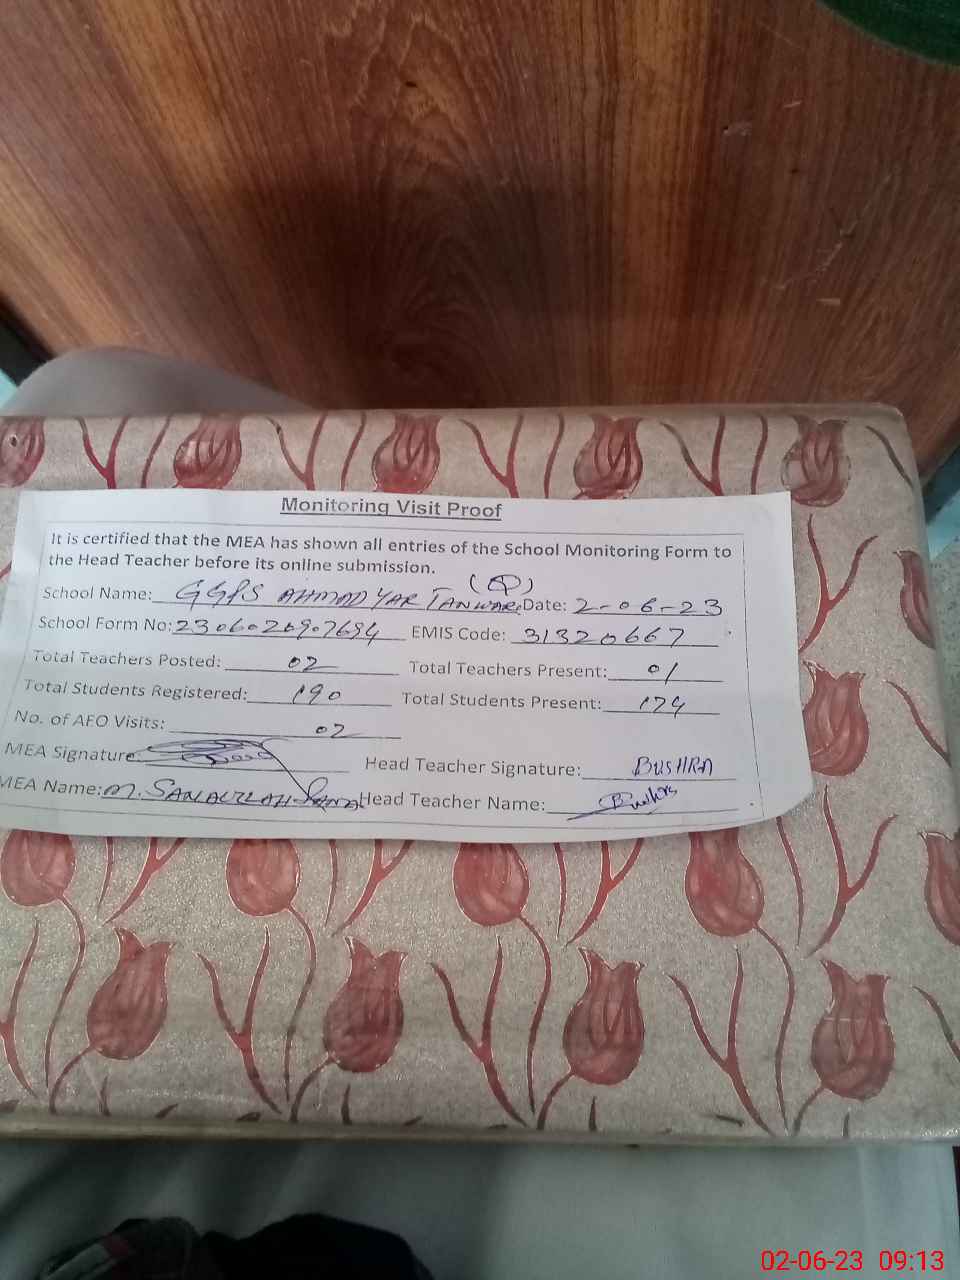 Monitoring Visit Proof
It is certified that the MEA has shown all entries of the School Monitoring Form to
the Head Teacher before its online submission.
School Name: GGPS AHMAD YAR TANWARI Date: 2-06-23
School Form No: 2306020907694 EMIS Code: 31320667
Total Teachers Posted: 02 Total Teachers Present: 01
Total Students Registered: 190 Total Students Present: 174
No. of AEO Visits: 02
MEA Signature: Head Teacher Signature: BUSHRA
MEA Name: M. SANAULLAH Head Teacher Name: Bushra
02-06-23 09:13